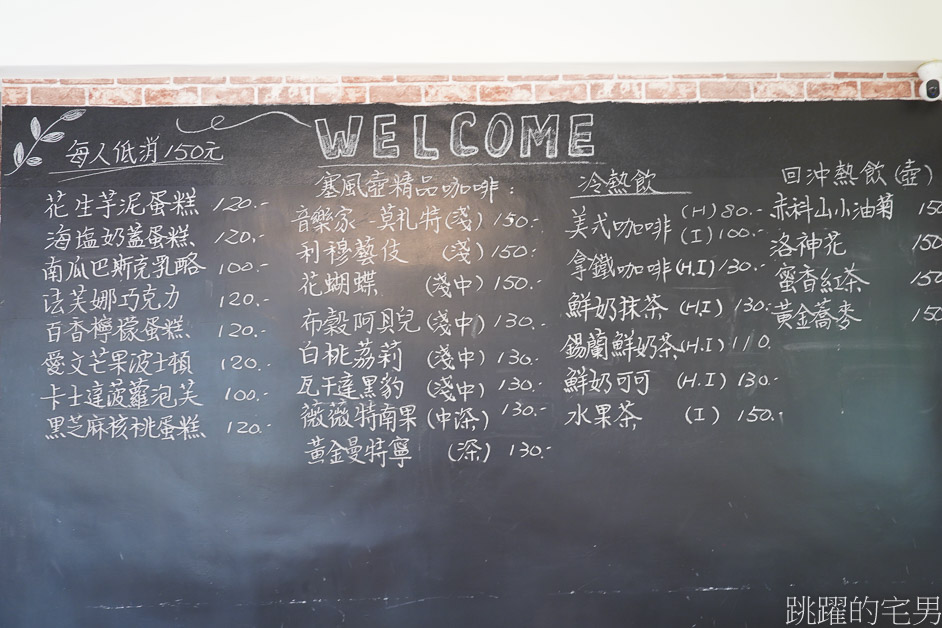 WELCOME
每人低消150元
花生芋泥蛋糕 120.-
海塩奶蓋蛋糕 120.-
南瓜巴斯克乳酪 100.-
法芙娜巧克力 120.-
百香檸檬蛋糕 120.-
愛文芒果波士頓 120.-
卡士達菠蘿泡芙 100.-
黑芝麻核桃蛋糕 120.-
塞風壺精品咖啡:
音樂家 莫札特(淺) 150.-
利穆藝伎 (淺) 150.-
花蝴蝶 (淺中) 150.-
布穀阿貝兒(淺中) 130.-
白桃荔莉 (淺中) 130.-
瓦干達黑豹 (淺中) 130.-
薇薇特南果(中深) 130.-
黃金曼特寧 (深) 130.-
冷熱飲
美式咖啡 (H) 80.-
(I) 100.-
拿鐵咖啡(H.I) 130.-
鮮奶抹茶 (H.I) 130.-
錫蘭鮮奶茶(H.I) 110.
鮮奶可可 (H.I) 130.-
水果茶 (I) 150.-
回沖熱飲(壺)
赤科山小油菊 150
洛神花 150
蜜香紅茶 150
黃金蕎麥 150
跳躍的宅男